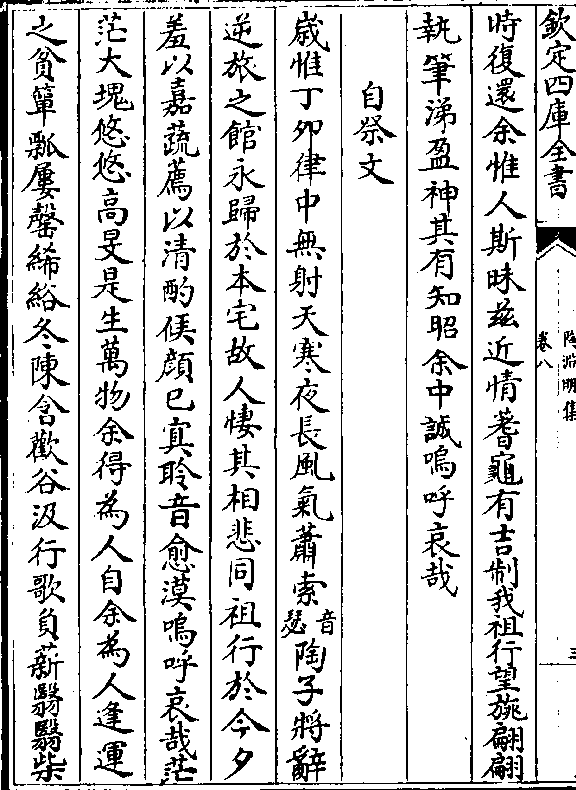 欽定四庫全書
陶淵明集
卷八
三
時復還余惟人斯昧兹近情蓍龜有吉制我祖行望旐翩翩
執筆涕盈神其有知昭余中誠嗚呼哀哉
自祭文
嵗惟丁夘律中無射天寒夜長風氣蕭索音瑟陶子將辭
逆旅之館永歸於本宅故人悽其相悲同祖行於今夕
羞以嘉蔬薦以清酌候顔已寘聆音愈漠嗚呼哀哉茫
茫大塊悠悠高旻是生萬物余得為人自余為人逢運
之貧簞瓢屢罄絺綌冬陳含歡谷汲行歌負薪翳翳柴